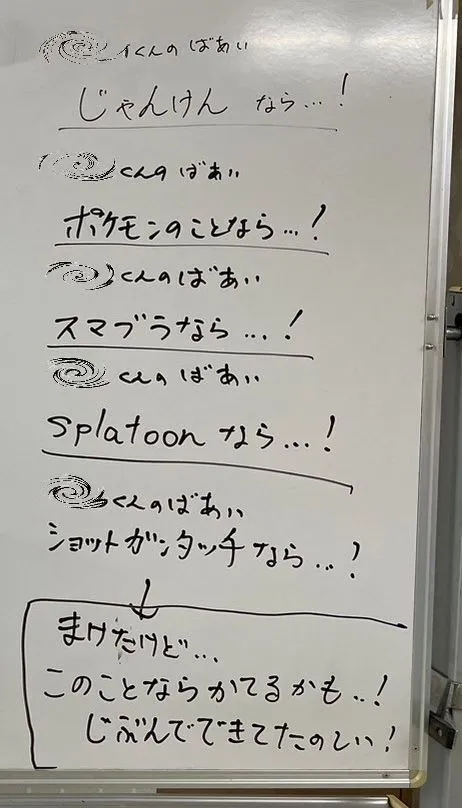 イくんのばあい
じゃんけんなら…!
くんのばあい
ポケモンのことなら…!
くんのばあい
スマブラなら…!
くんのばあい
Splatoonなら…!
くんのばあい
ショットガンタッチなら…!
↓
まけたけど…
このことならかてるかも…!
じぶんでできてたのしい!